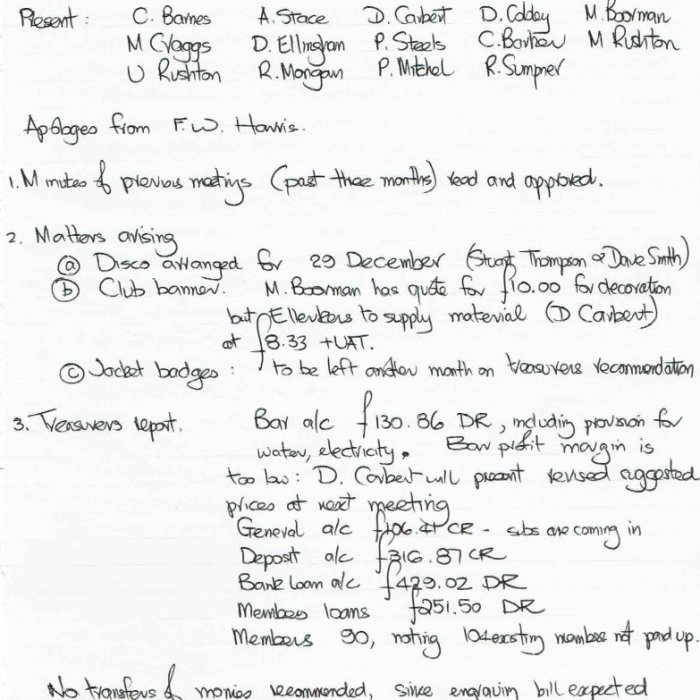 Present : C. Barnes A. Stace D. Carbert D. Coldey M. Boorman
M Craggs D. Ellingham P. Steels C. Barker M Rushton
U Rushton R. Morgan P. Mitchel R. Sumpner
Apologes from F.W. Harris.
1. Minutes of previous meetings (past three months) read and approved.
2. Matters arising
(a) Disco arranged for 29 December (Stuart Thompson & Dave Smith)
(b) Club banner. M. Boorman has quote for £10.00 for decoration
but Ellerkers to supply material (D Carbert)
at £8.33 + VAT.
(c) Jacket badges : to be left another month on treasurers recommendation
3. Treasurers report. Bar a/c £130.86 DR, including provision for
water, electricity. Bar profit margin is
too low : D. Carbert will present revised suggested
prices at next meeting
General a/c £106.41 CR - subs are coming in
Deposit a/c £316.87 CR
Bank Loan a/c £429.02 DR
Members loans £251.50 DR
Members 90, noting 104 existing members not paid up.
No transfers of monies recommended, since enquiry bill expected